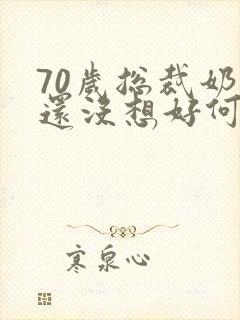 70歲总裁奶
還没想好何
寒泉心